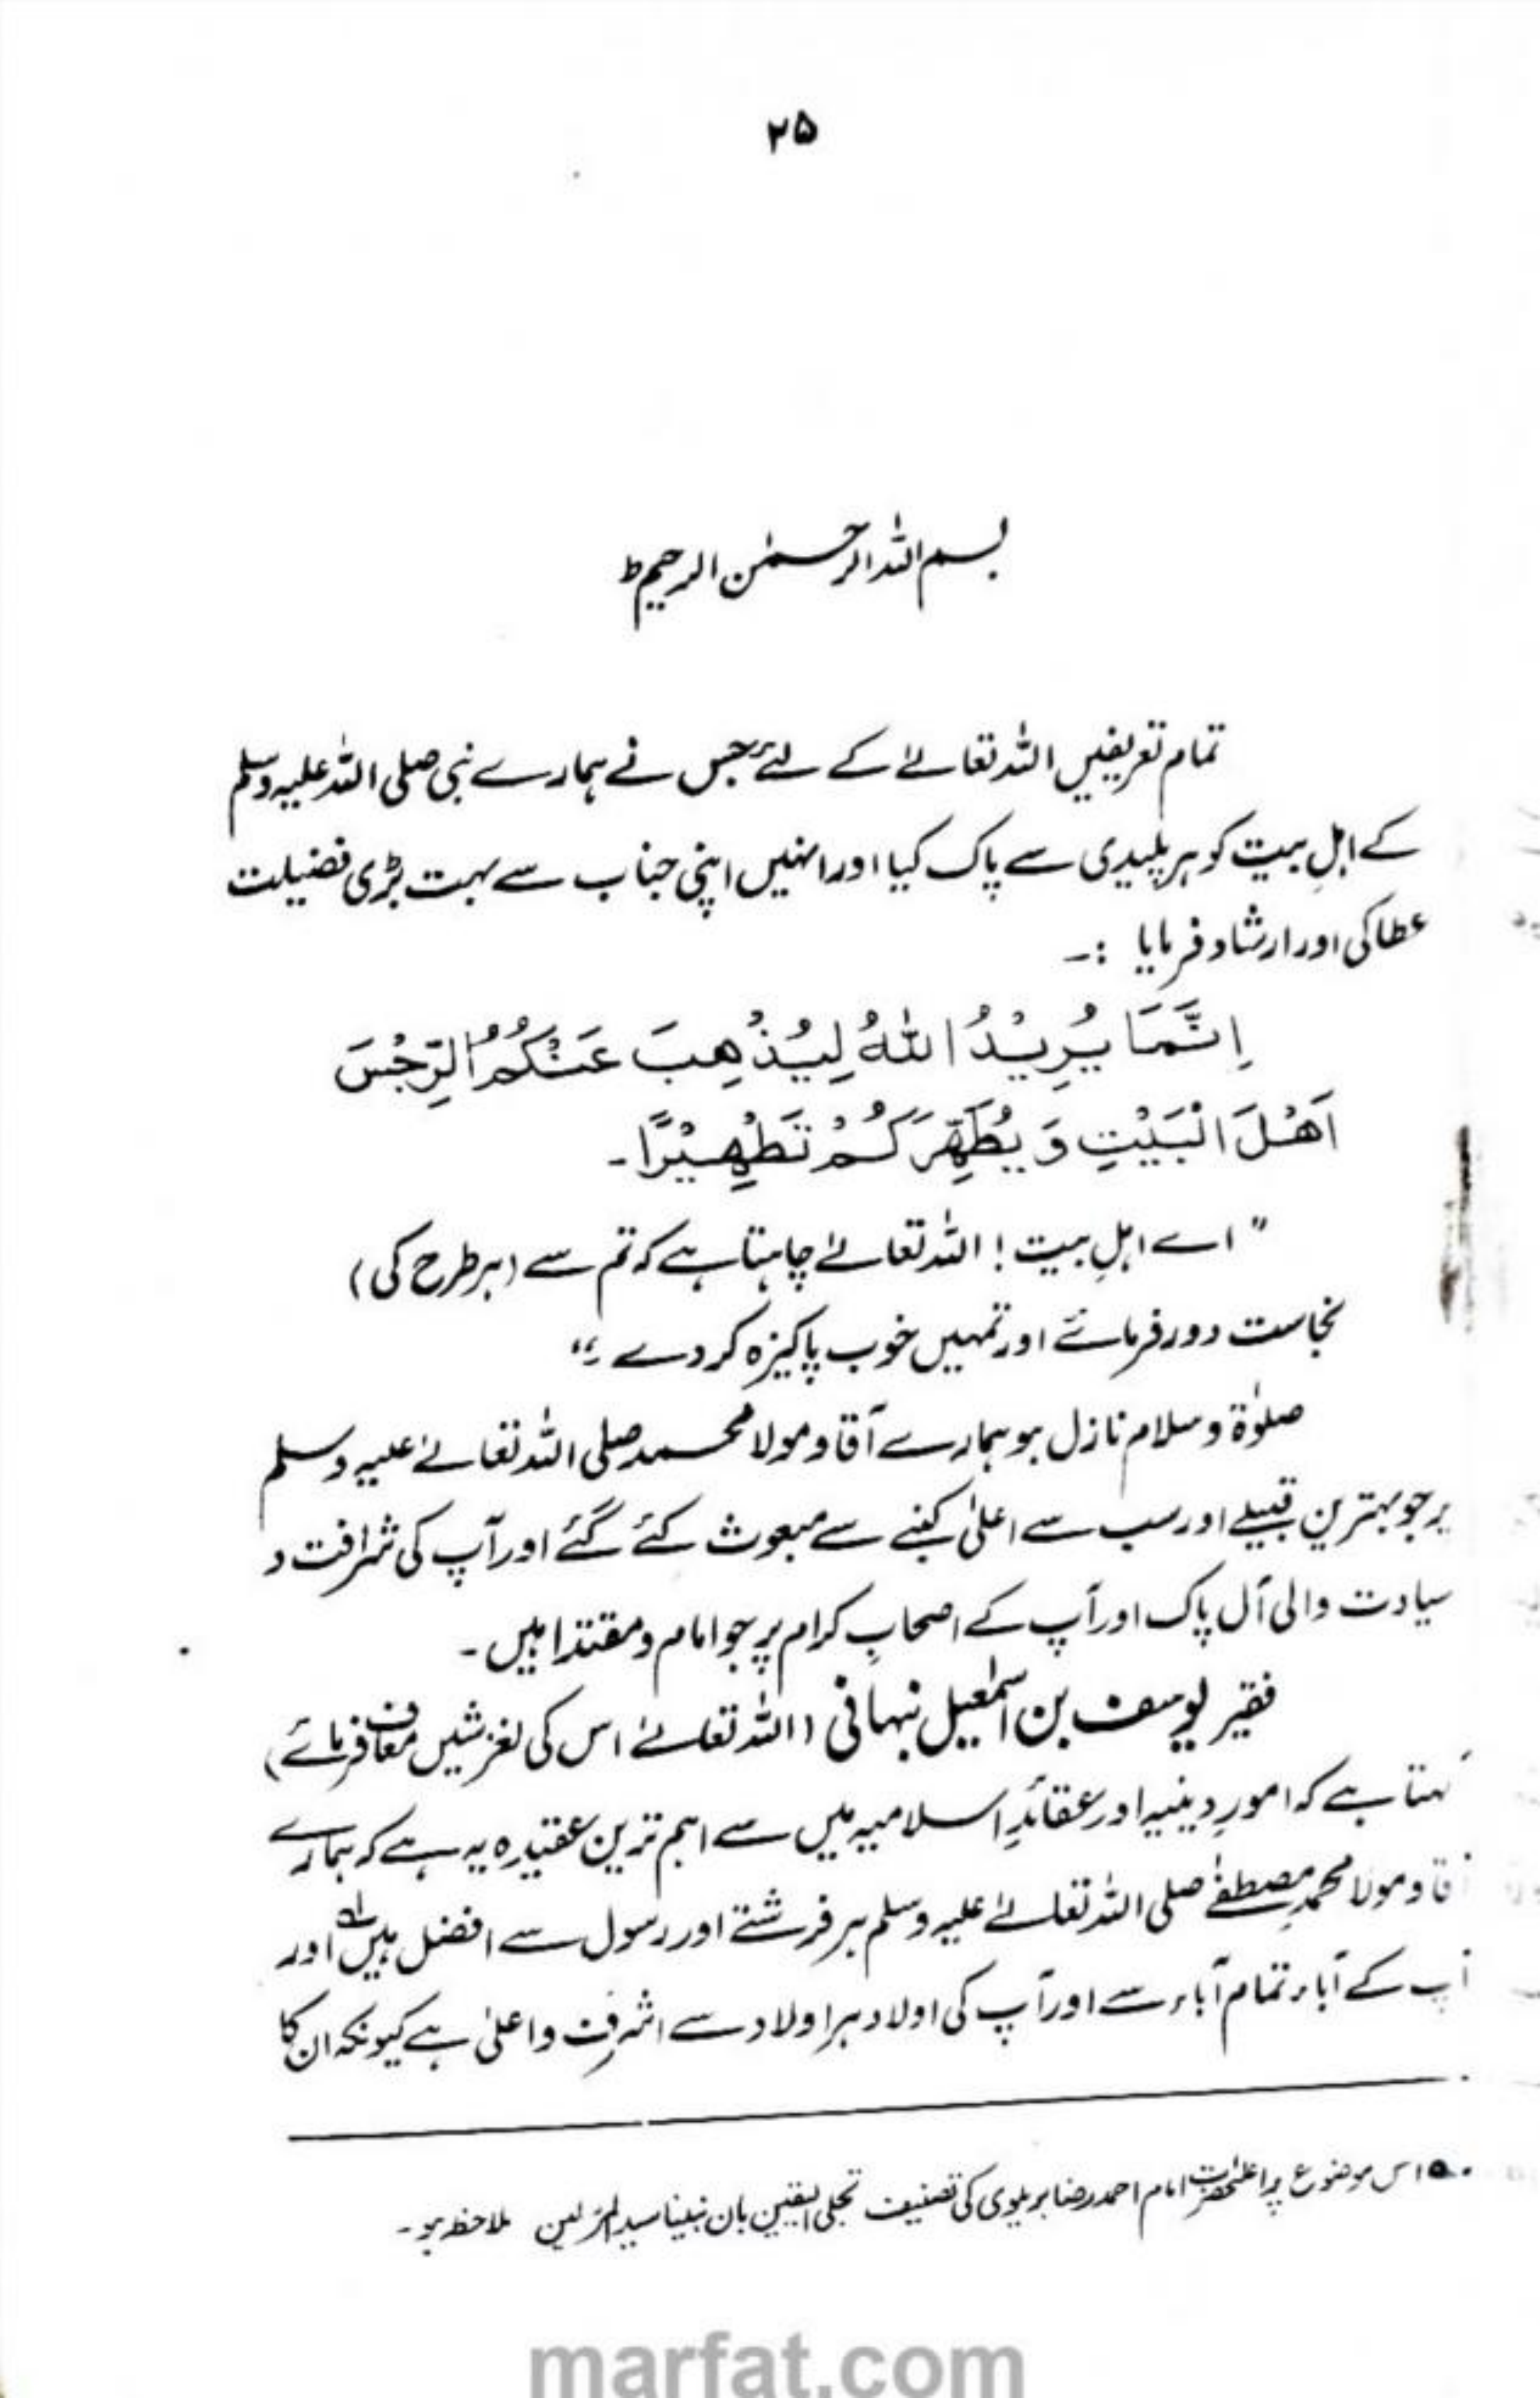 ۲۵
بسم اللہ الرحمٰن الرحیم ط
تمام تعریفیں اللہ تعالےٰ کے لئے جس نے ہمارے نبی صلی اللہ علیہ وسلم
کے اہلِ بیت کو ہر پلیدی سے پاک کیا اور انہیں اپنی جناب سے بہت بڑی فضیلت
عطا کی اور ارشاد فرمایا :-
اِنَّمَا يُرِيْدُ اللّٰهُ لِيُذْهِبَ عَنْكُمُ الرِّجْسَ
اَهْلَ الْبَيْتِ وَ يُطَهِّرَكُمْ تَطْهِيْرًا۔
" اے اہلِ بیت ! اللہ تعالےٰ چاہتا ہے کہ تم سے (ہر طرح کی)
نجاست دور فرمائے اور تمہیں خوب پاکیزہ کر دے ۔"
صلوٰۃ و سلام نازل ہو ہمارے آقا و مولا محمد صلی اللہ تعالےٰ علیہ وسلم
پر جو بہترین قبیلے اور سب سے اعلیٰ کنبے سے مبعوث کئے گئے اور آپ کی شرافت و
سیادت والی آل پاک اور آپ کے اصحابِ کرام پر جو امام و مقتدا ہیں ۔
فقیر یوسف بن اسمٰعیل نبہانی (اللہ تعالےٰ اس کی لغزشیں معاف فرمائے)
کہتا ہے کہ امورِ دینیہ اور عقائدِ اسلامیہ میں سے اہم ترین عقیدہ یہ ہے کہ ہمارے
آقا و مولا محمدِ مصطفےٰ صلی اللہ تعالےٰ علیہ وسلم ہر فرشتے اور رسول سے افضل ہیں اور
آپ کے آباء تمام آباء سے اور آپ کی اولاد ہر اولاد سے اشرف و اعلیٰ ہے کیونکہ ان کا
اس موضوع پر اعلیٰحضرت امام احمد رضا بریلوی کی تصنیف تجلی الیقین بان نبینا سید المرسلین ملاحظہ ہو ۔
marfat.com